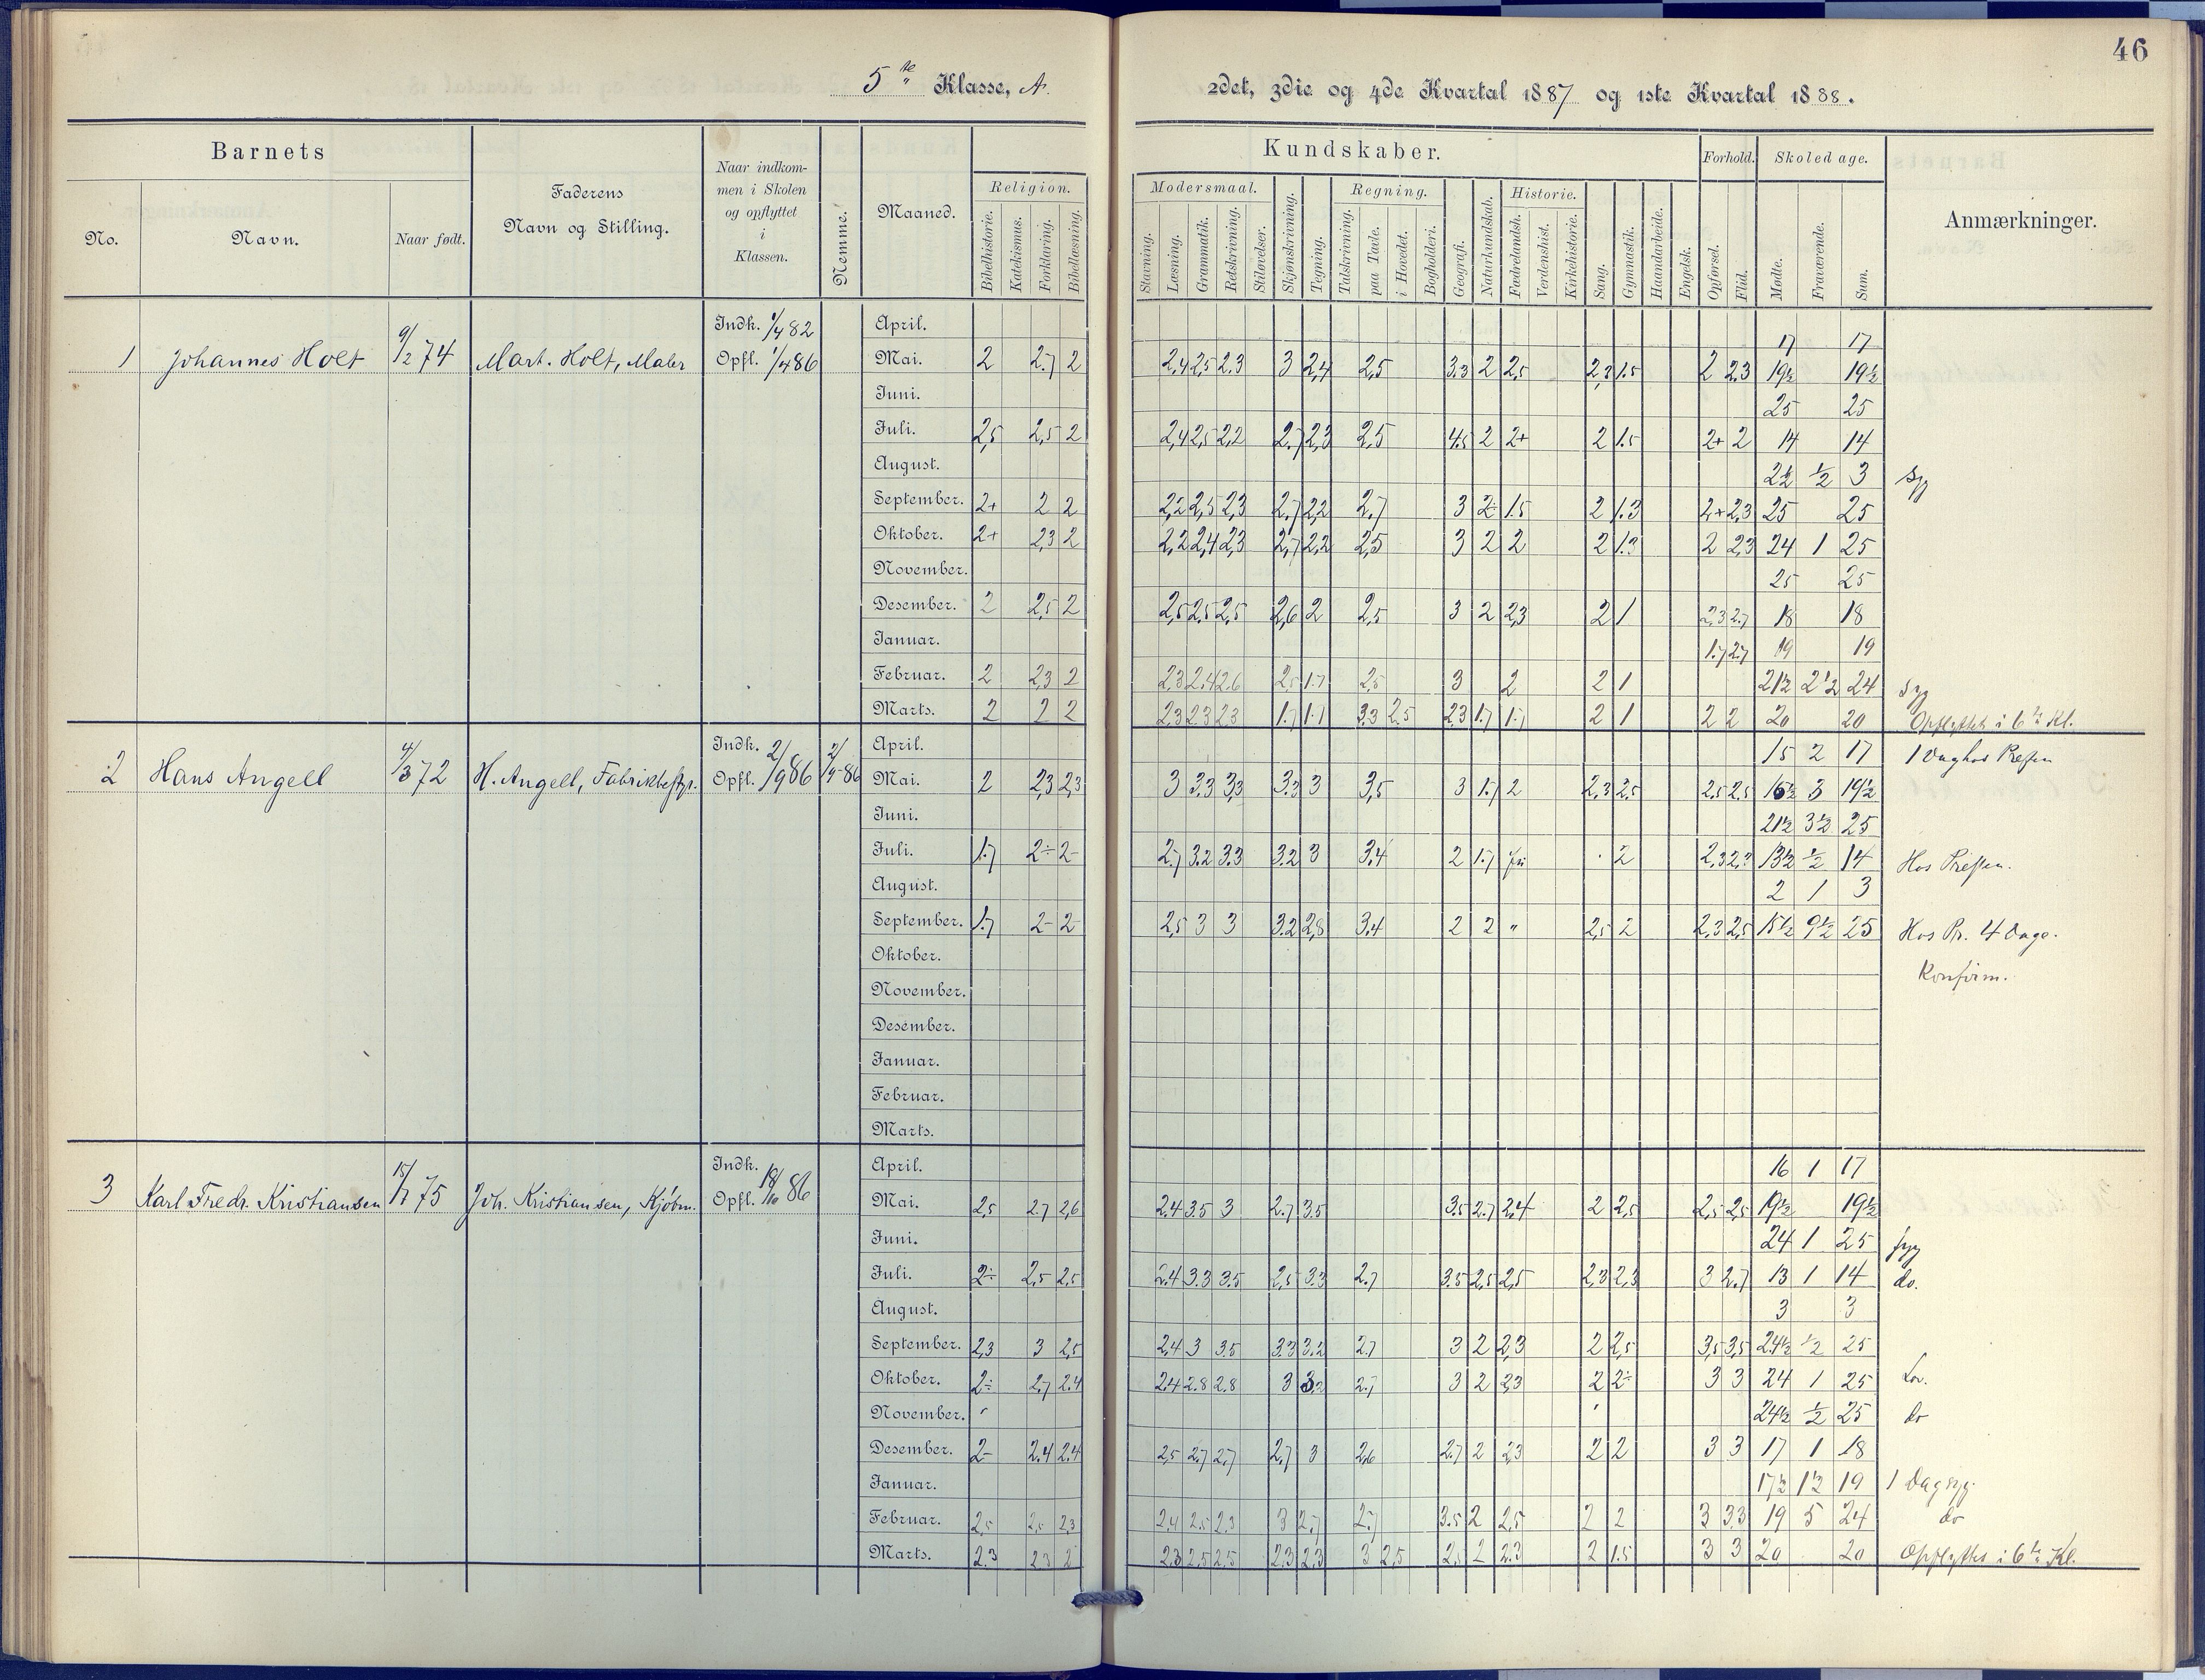 46
5te Klasse, A.
2det, 3die og 4de Kvartal 1887 og 1ste Kvartal 1888.
Barnets
No.
Navn.
Naar født.
Faderens
Navn og Stilling.
Naar indkom-
men i Skolen
og opflyttet
i
Klassen.
Nemme.
Maaned.
Religion.
Bibelhistorie.
Katekismus.
Forklaring.
Bibellæsning.
Kundskaber.
Modersmaal.
Stavning.
Læsning.
Grammatik.
Retskrivning.
Stiløvelser.
Skjønskrivning.
Tegning.
Regning.
Talskrivning.
paa Tavle.
i Hovedet.
Bogholderi.
Geografi.
Naturkundskab.
Historie.
Fædrelandsh.
Verdenshist.
Kirkehistorie.
Sang.
Gymnastik.
Haandarbeide.
Engelsk.
Forhold.
Opførsel.
Flid.
Skoledage.
Mødte.
Fraværende.
Sum.
Anmærkninger.
1 Johannes Holt 9/2 74 Mart. Holt, Maler
Indk. 1/4 82
Opfl. 1/4 86
April. 17 17
Mai. 2 2.7 2 2,4 2,5 2.3 3 2,4 2,5 3.3 2 2,5 2,3 1.5 2 2,3 19½ 19½
Juni. 25 25
Juli. 2,5 2,5 2 2,4 2,5 2,2 2.7 2,3 2,5 4.5 2 2+ 2 1.5 2+ 2 14 14
August. 2½ ½ 3 Syg
September. 2+ 2 2 2,2 2,5 2,3 2.7 2,2 2.7 3 2 1.5 2 1.3 2+ 2,3 25 25
Oktober. 2+ 2,3 2 2,2 2,4 2,3 2,7 2,2 2,5 3 2 2 2 1.3 2 2,3 24 1 25
November. 25 25
Desember. 2 2,5 2 2,5 2,5 2,5 2,6 2 2,5 3 2 2,3 2 1 2,3 2.7 18 18
Januar. 1.7 2.7 19 19
Februar. 2 2,3 2 2,3 2.4 2.6 2,5 1.7 2,5 3 2 2 1 21½ 2½ 24 Syg
Marts. 2 2 2 2,3 2,3 2,3 1.7 1.7 3.3 2.5 2,3 1.7 1.7 2 1 2 2 20 20 Opflyttet i 6te Kl.
2 Hans Angell 4/3 72 H. Angell, Fabrikbestyr.
Indk.
Opfl. 2/9 86
April. 15 2 17 1 Dag hos Presten
Mai. 2 2,3 2,3 3 3.3 3,3 3.3 3 3,5 3 1.7 2 2,3 2,5 2,5 2,5 16½ 3 19½
Juni. 21½ 3½ 25
Juli. 1.7 2÷ 2- 2.7 3.2 3.3 3.2 3 3.4 2 1.7 2 13½ ½ 14 Hos Presten.
August. 2 1 3
September. 1.7 2- 2- 2,5 3 3 3.2 2,8 3.4 2 2 " 2,5 2 2,3 2,5 15½ 9½ 25 Hos Pr. 4 Dage.
Oktober. Konfirm.
November.
Desember.
Januar.
Februar.
Marts.
3 Karl Fredr. Kristiansen 75 Joh. Kristiansen, Kjøbm.
Indk.
Opfl. 18/10 86
April. 16 1 17
Mai. 2,5 2.7 2,6 2.4 3.5 3 2.7 3.5 3.5 2.7 2,4 2 2,5 2,5 2,5 19½ 19½
Juni. 24 1 25 syg
Juli. 2÷ 2,5 2,5 2.4 3.3 3.5 2,5 3.3 2.7 3.5 2,5 2,5 2,3 2,3 3 2.7 13 1 14 do.
August. 3 3
September. 2,3 3 2,5 2,4 3 3.5 3.3 3,2 2.7 3 2 2,3 2 2,5 3,5 3,5 24½ ½ 25
Oktober. 2÷ 2.7 2.4 2.4 2.8 2.8 3 3,2 2.7 3 2 2,3 2 2÷ 3 3 24 1 25 Lov.
November. 24½ ½ 25 do
Desember. 2- 2.4 2.4 2,5 2.7 2.7 2,7 3 2,6 2.7 2 2,3 2 2 3 3 17 1 18
Januar. 17½ 1½ 19 1 Dag syg.
Februar. 2,5 2,5 2,3 2,4 2.5 2.3 3 2.7 2.7 3.5 2 2,5 2 2 3 3.3 19 5 24 do
Marts. 2.3 2.3 2 2.3 2.5 2.5 2.3 2.3 3 2,5 2,5 2 2.3 2 1.5 3 3 20 20 Opflyttet i 6te Kl.